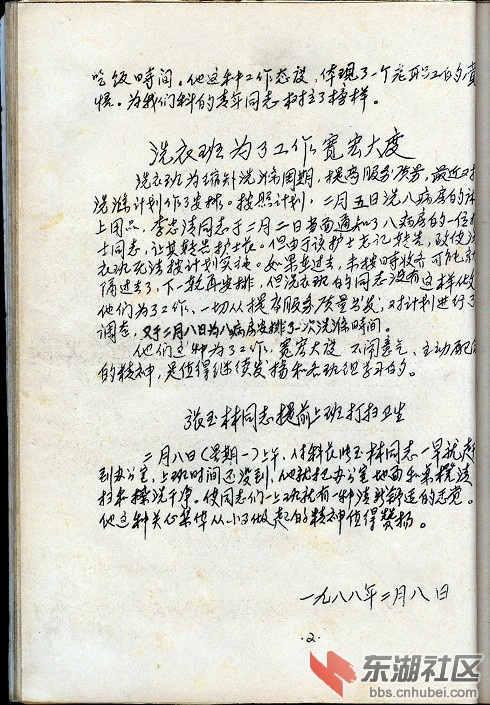 吃饭时间。他这种工作态度,体现了一个老职工的责
任。为我们科的青年同志树立了榜样。
洗衣班为了工作宽宏大度
洗衣班为缩短洗涤周期,提高服务质量,最近对
洗涤计划作了安排。按照计划,二月五日洗八病房的床
上用品。李志清同志于二月二日书面通知了八病房的一位护
士同志,让其转告护士长。但由于该护士忘记转告,致使洗
衣班无法按计划实施。如果推过去,未按时收齐可能就
隔过去了,下一轮再安排,但洗衣班的同志没有这样做
他们为了工作,一切从提高服务质量出发,对计划进行了
调态,又于二月八日为八病房安排了一次洗涤时间。
他们这种为了工作,宽宏大度 不闹意气、主动配合
的精神,是值得继续发扬和各班组学习的。
张玉林同志提前上班打扫卫生
二月八日(星期一)上午,付科长张玉林同志一早就赶
到办公室,上班时间还没到,他就把办公室地面和桌櫈清
扫和擦洗干净。使同志们一上班就有一种清新舒适的感觉。
他这种关心集体从小事做起的精神值得赞扬。
一九八八年二月八日
·2·
东湖社区
bbs.cnhubei.com